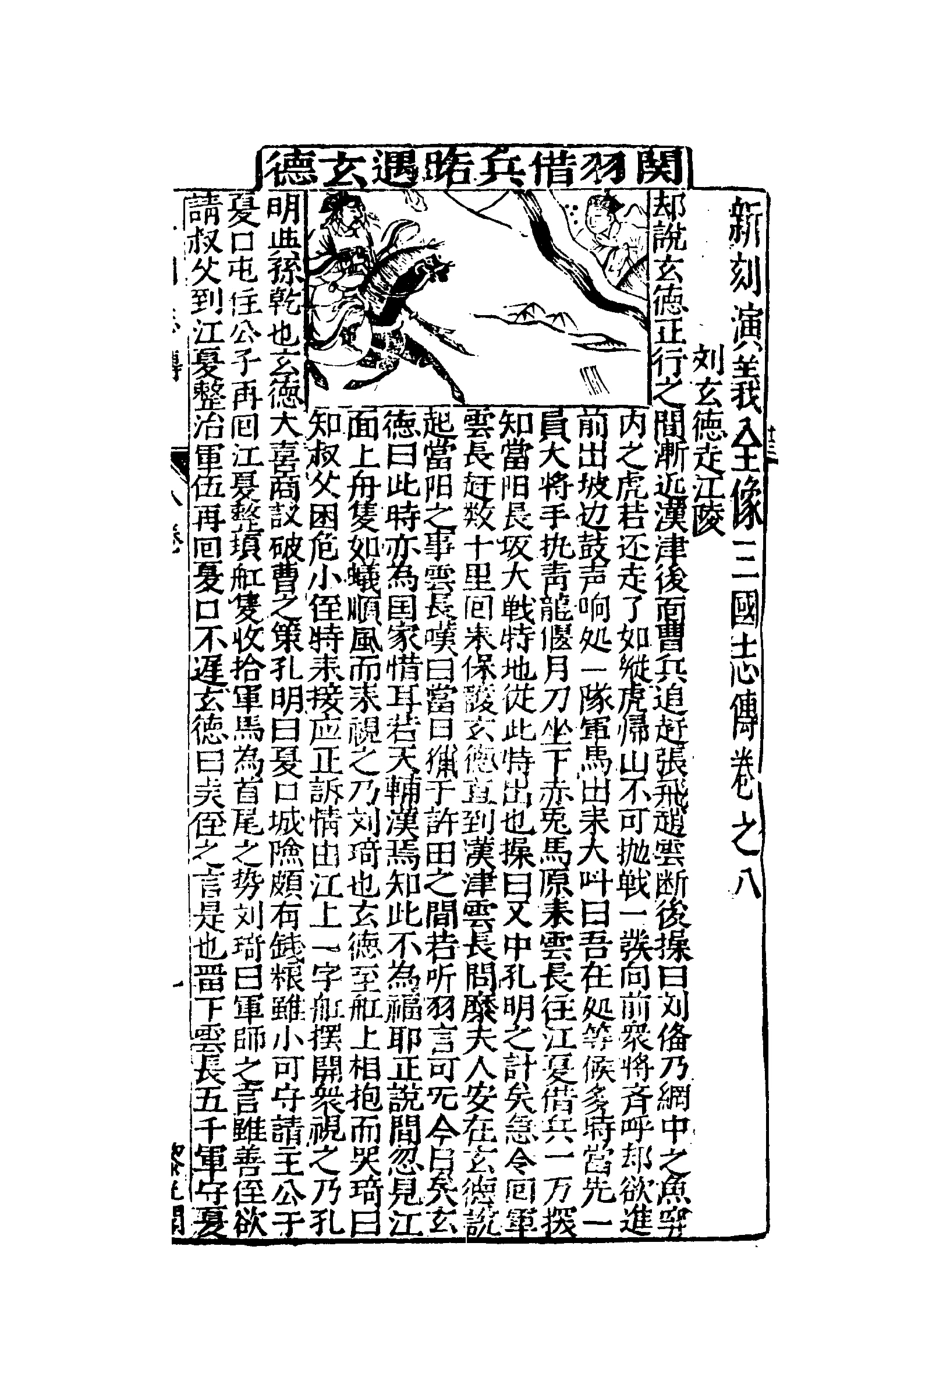 関羽借兵路遇玄德
新刻演義全像三國志傳卷之八
刘玄德走江陵
却說玄德正行之間漸近漢津後面曹兵追赶張飛趙雲断後操曰刘俻乃網中之魚穽
内之虎若还走了如縱虎歸山不可抛戦一發向前衆將斉呼却欲進
前出坡边鼓声响処一隊軍馬出来大呌曰吾在処等候多時當先一
員大將手执青龍偃月刀坐下赤兎馬原来雲長往江夏借兵一万探
知當阳長坂大戦特地從此特出也操曰又中孔明之計矣急令囘軍
雲長赶数十里囘来保護玄德直到漢津雲長問糜夫人安在玄德説
起當阳之事雲長嘆曰當日獵于許田之間若听羽言可旡今日矣玄
德曰此時亦為国家惜耳若天輔漢焉知此不為福耶正說間忽見江
面上舟隻如蟻順風而来視之乃刘琦也玄德至舡上相抱而哭琦曰
知叔父困危小侄特来接应正訴情由江上一字舡摆開衆視之乃孔
明與孫乾也玄德大喜商议破曹之策孔明曰夏口城險頗有銭粮雖小可守請主公于
夏口屯住公子再囘江夏整頓舡隻收拾軍馬為首尾之势刘琦曰軍師之言雖善侄欲
請叔父到江夏整治軍伍再囘夏口不遲玄德曰贤侄之言是也畱下雲長五千軍守夏
八卷